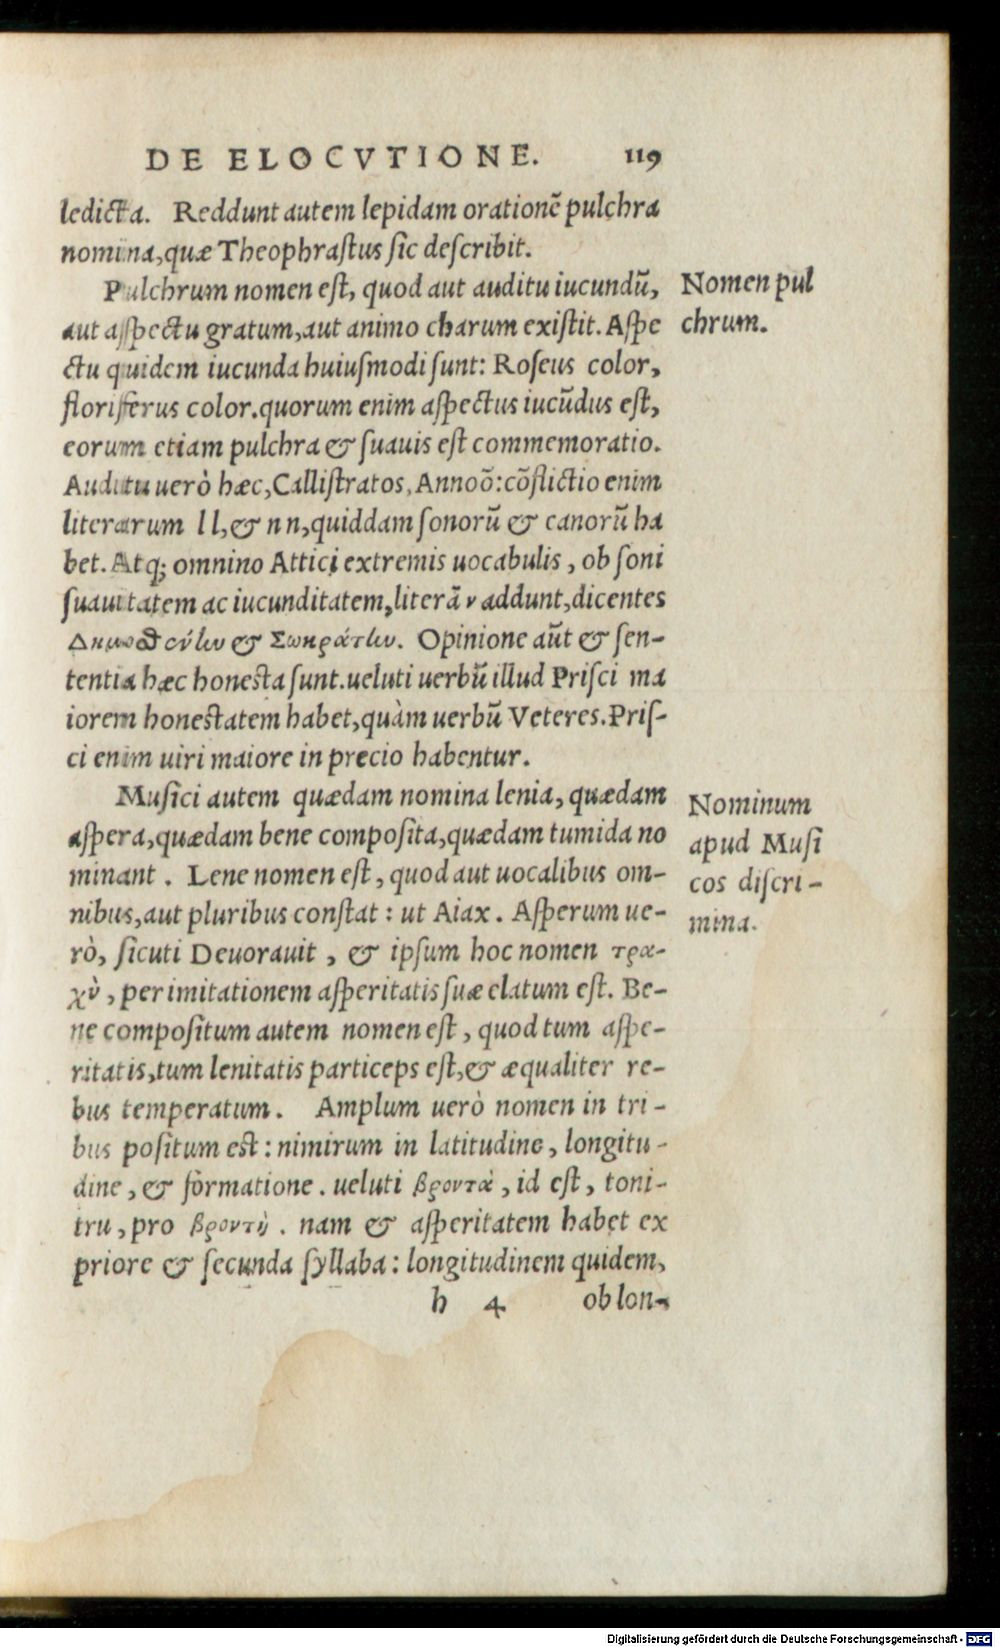 DE ELOCVTIONE. 119
ledicta. Reddunt autem lepidam orationē pulchra
nomina, quæ Theophrastus sic describit.
Pulchrum nomen est, quod aut auditu iucundū,
aut aspectu gratum, aut animo charum existit. Aspe
ctu quidem iucunda huiusmodi sunt: Roseus color,
florifferus color. quorum enim aspectus iucūdus est,
eorum etiam pulchra & suauis est commemoratio.
Auditu uerò hæc, Callistratos, Annoō: cōflictio enim
literarum ll, & nn, quiddam sonorū & canorū ha
bet. Atq; omnino Attici extremis uocabulis, ob soni
suauitatem ac iucunditatem, literā ν addunt, dicentes
Δημοσθένην & Σωκράτην. Opinione aūt & sen-
tentia hæc honesta sunt. ueluti uerbū illud Prisci ma
iorem honestatem habet, quàm uerbū Veteres. Pris-
ci enim uiri maiore in precio habentur.
Musici autem quædam nomina lenia, quædam
aspera, quædam bene composita, quædam tumida no
minant. Lene nomen est, quod aut uocalibus om-
nibus, aut pluribus constat: ut Aiax. Asperum ue-
rò, sicuti Deuorauit, & ipsum hoc nomen τρα-
χὺ, per imitationem asperitatis suæ elatum est. Be-
ne compositum autem nomen est, quod tum aspe-
ritatis, tum lenitatis particeps est, & æqualiter re-
bus temperatum. Amplum uerò nomen in tri-
bus positum est: nimirum in latitudine, longitu-
dine, & formatione. ueluti βροντὰ, id est, toni-
tru, pro βροντὴ. nam & asperitatem habet ex
priore & secunda syllaba: longitudinem quidem,
h 4 ob lon-
Nomen pul
chrum.
Nominum
apud Musi
cos discri-
mina.
Digitalisierung gefördert durch die Deutsche Forschungsgemeinschaft - DFG